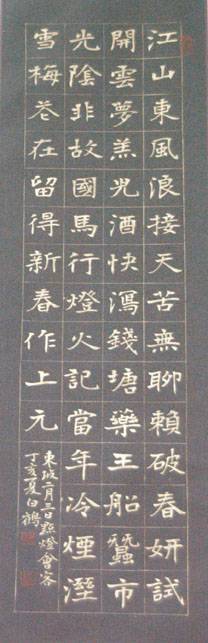 江山東風浪接天苦無聊賴破春妍試
開雲夢羔兒酒快瀉錢塘藥王船蠶市
光陰非故國馬行燈火記當年冷煙溼
雪梅花在留得新春作上元
東坡二月三日點燈會客
丁亥夏白鶴